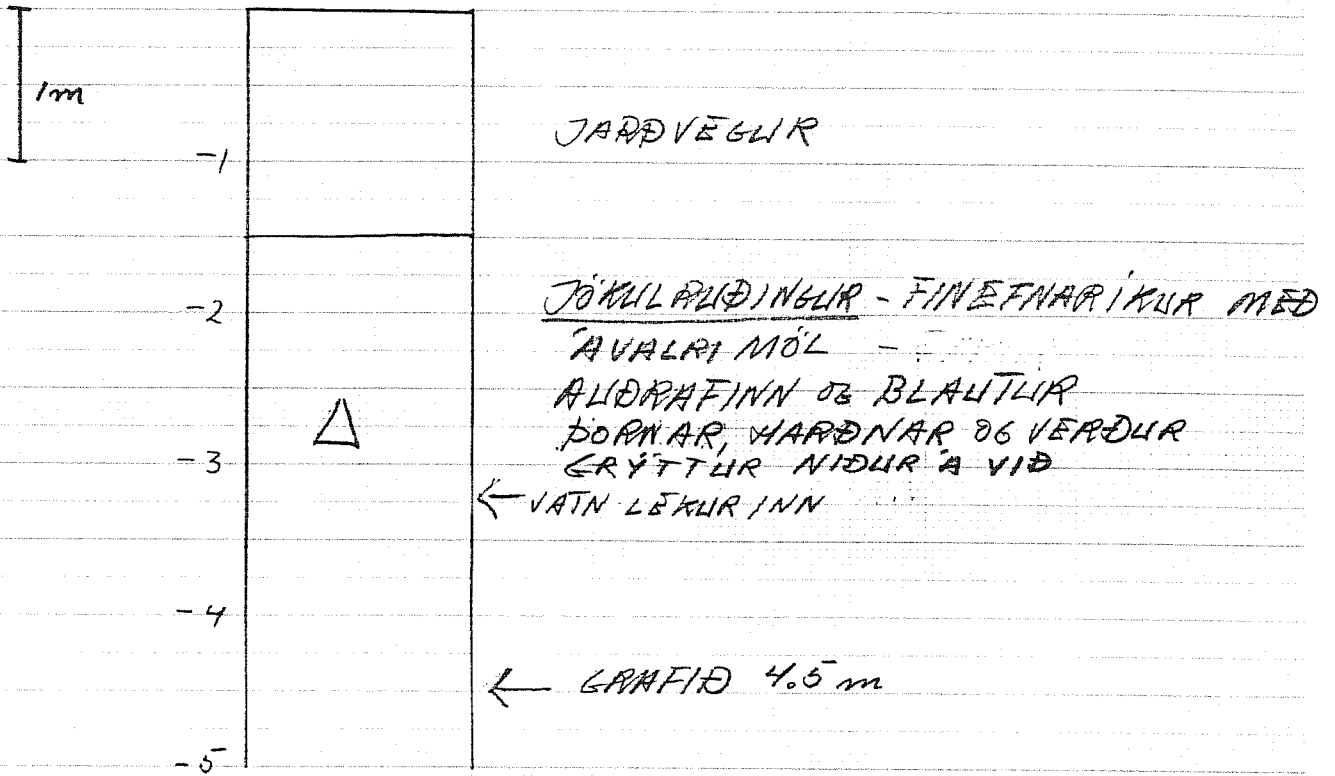 1m
JARÐVEGUR
-1
-2
JÖKULRUÐINGUR - FINEFNARÍKUR MEÐ
ÁVALRI MÖL -
AUÐRAFINN OG BLAUTUR
ÞORNAR, HARÐNAR OG VERÐUR
-3
GRÝTTUR NIÐUR Á VIÐ
← VATN LEKUR INN
-4
← GRAFIÐ 4.5 m
-5